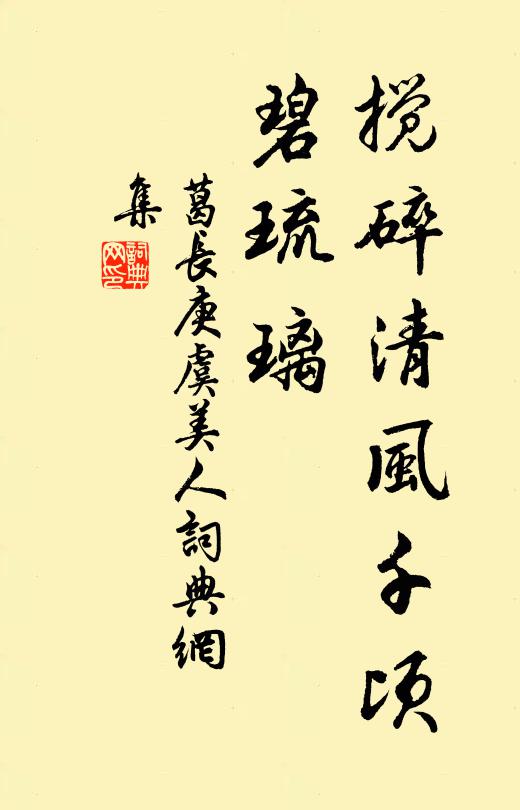 搅碎清風千頃
碧琉璃
葛長庚虞美人詞典網
集
詞典網印